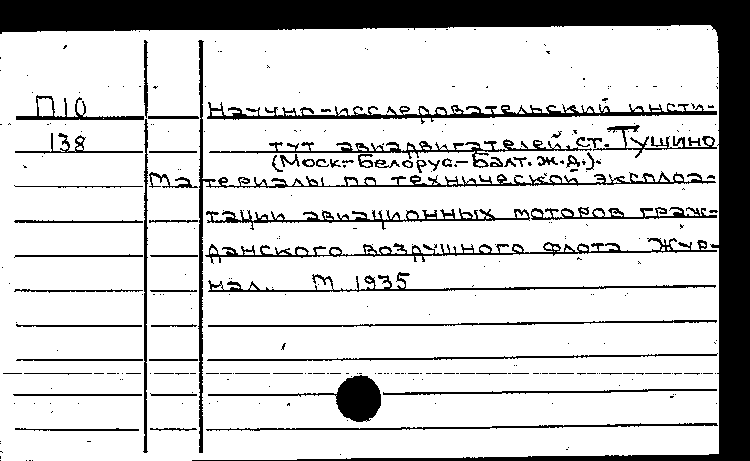 П10 Научно-исследовательский инсти-
138 тут авиадвигателей. ст. Тушино
(Моск.-Белорус.-Балт. ж.д.).
Материалы по технической эксплоа-
тации авиационных моторов граж-
данского воздушного флота Жур-
нал. М 1935